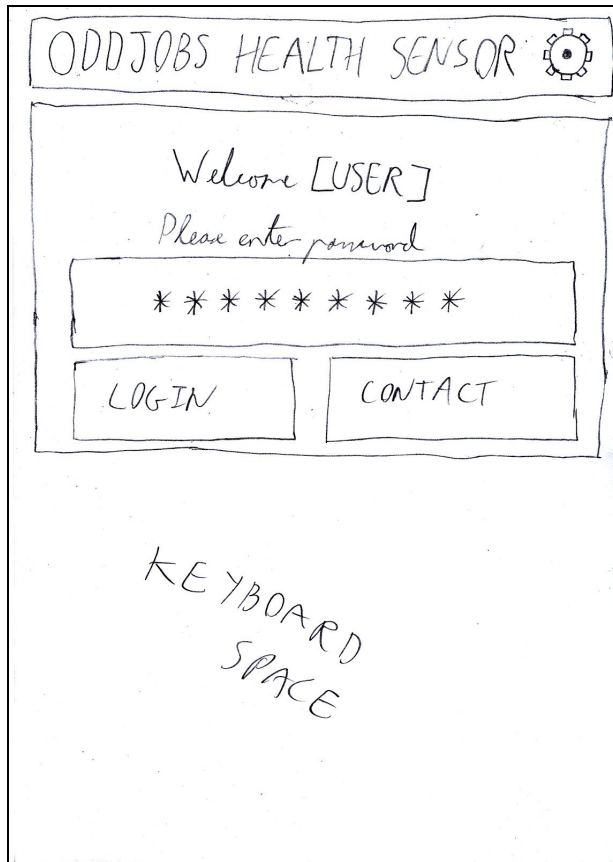 ODDJOBS HEALTH SENSOR
Welcome [USER]
Please enter password
* * * * * * * * *
LOGIN
CONTACT
KEYBOARD
SPACE